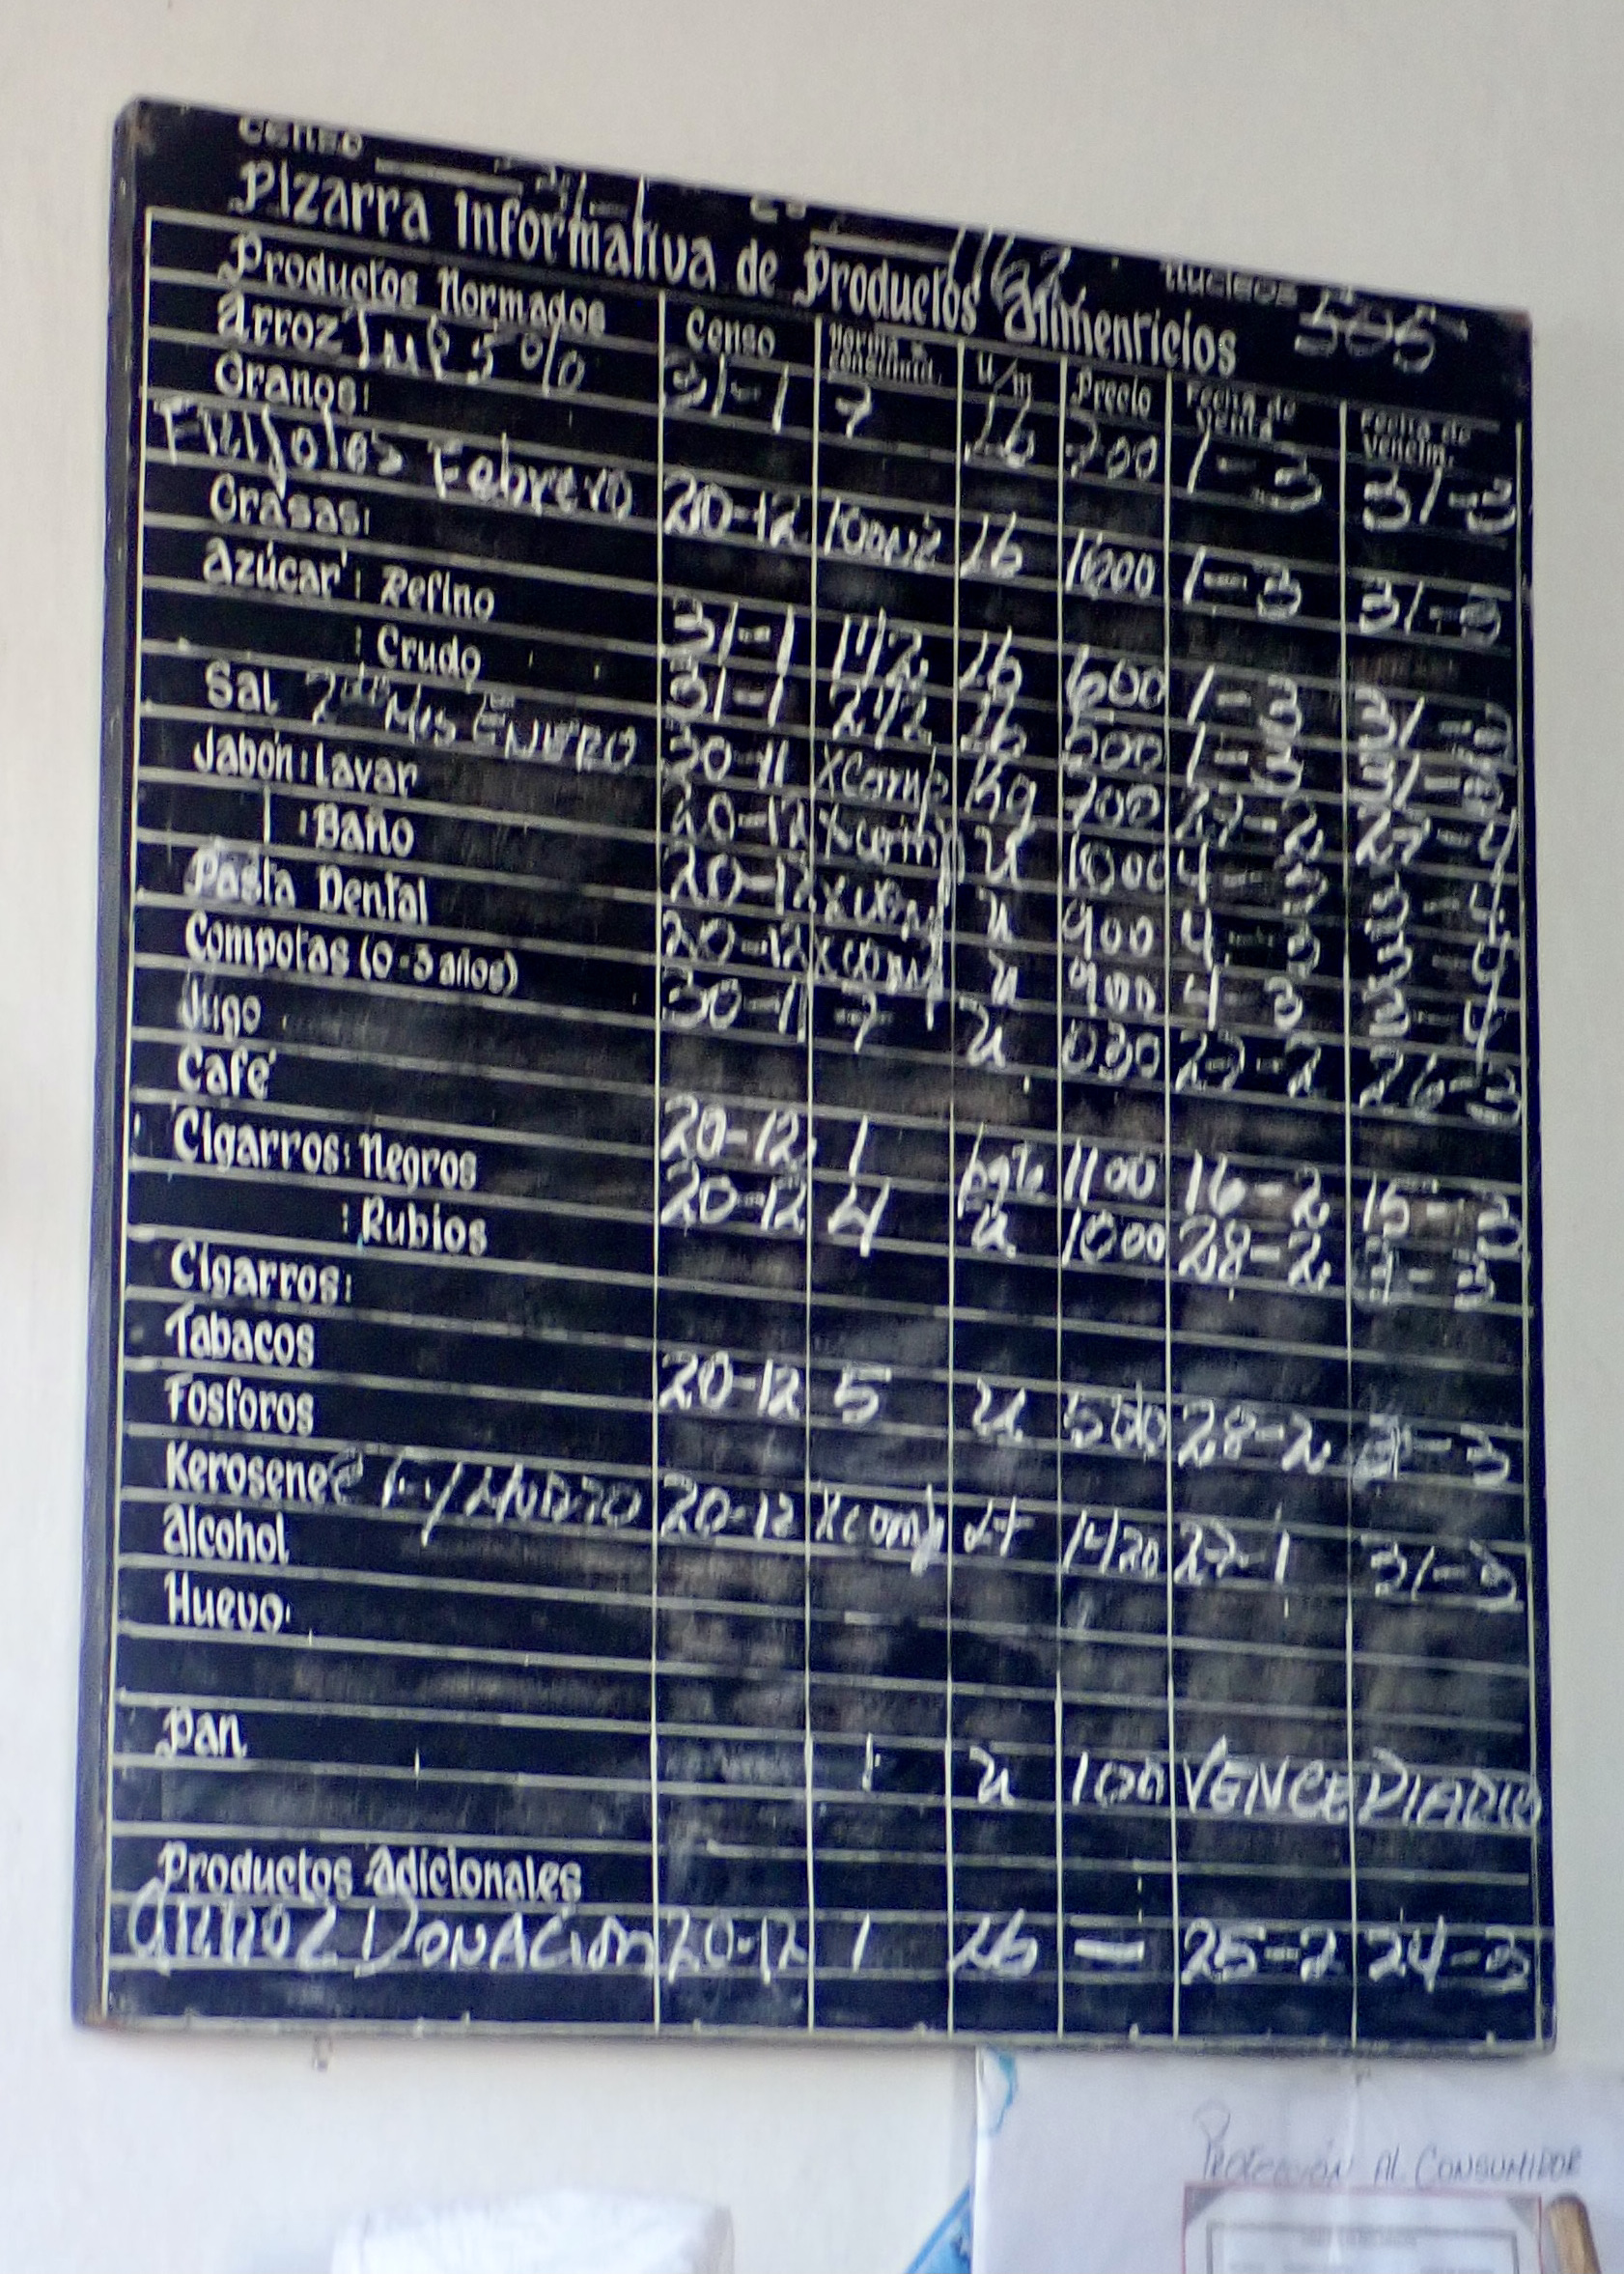 Censo 31-1 1162 Núcleos 505
Pizarra Informativa de Productos Alimenticios
Productos Normados Censo Norma de Consumid. U/m Precio Fecha de Venta Fecha de Vencim.
Arroz 5% 31-1 7 Lb 700 1-3 31-3
Granos:
Frijoles Febrero 20-12 10onz Lb 1600 1-3 31-3
Grasas:
Azúcar: Refino 31-1 1½ Lb 600 1-3 31-3
: Crudo 31-1 2½ Lb 500 1-3 31-3
Sal Enero 20-11 XComp Kg 700 27-2 27-4
Jabón: Lavar 20-12 Xcomp u 1000 4-3 3-4
: Baño 20-12 Xcomp u 900 4-3 3-4
Pasta Dental 20-12 Xcomp u 900 4-3 3-4
Compotas (0-3 años) 30-11 7 u 030 26-3
Jugo
Café 20-12 1 1100 16-2 15-3
Cigarros: Negros 20-12 4 u 1000 28-2
: Rubios
Cigarros:
Tabacos 20-12 5 u 500 28-2
Fosforos
Kerosene 20-12 Xcomp Lt 1420 27-1 31-3
Alcohol
Huevo
Pan 1 u 100 VENCE DIARIO
Productos Adicionales
Arroz DONACION 20-12 1 Lb — 25-2 24-3
PROTECCIÓN AL CONSUMIDOR